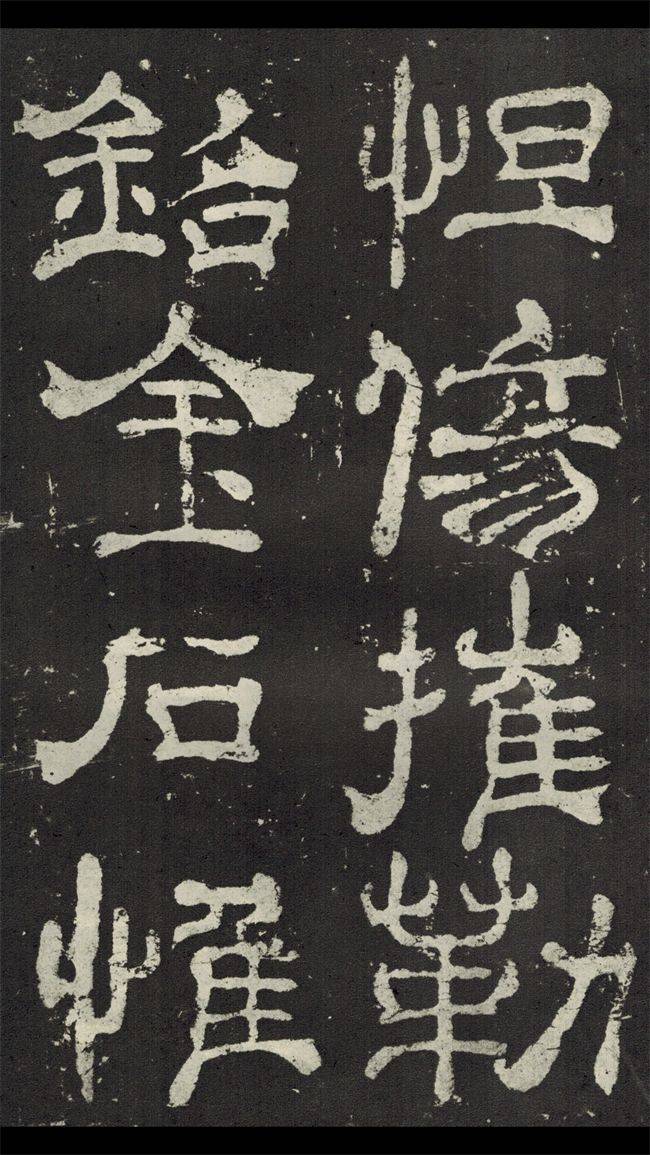 怛傷摧勒
銘金石惟